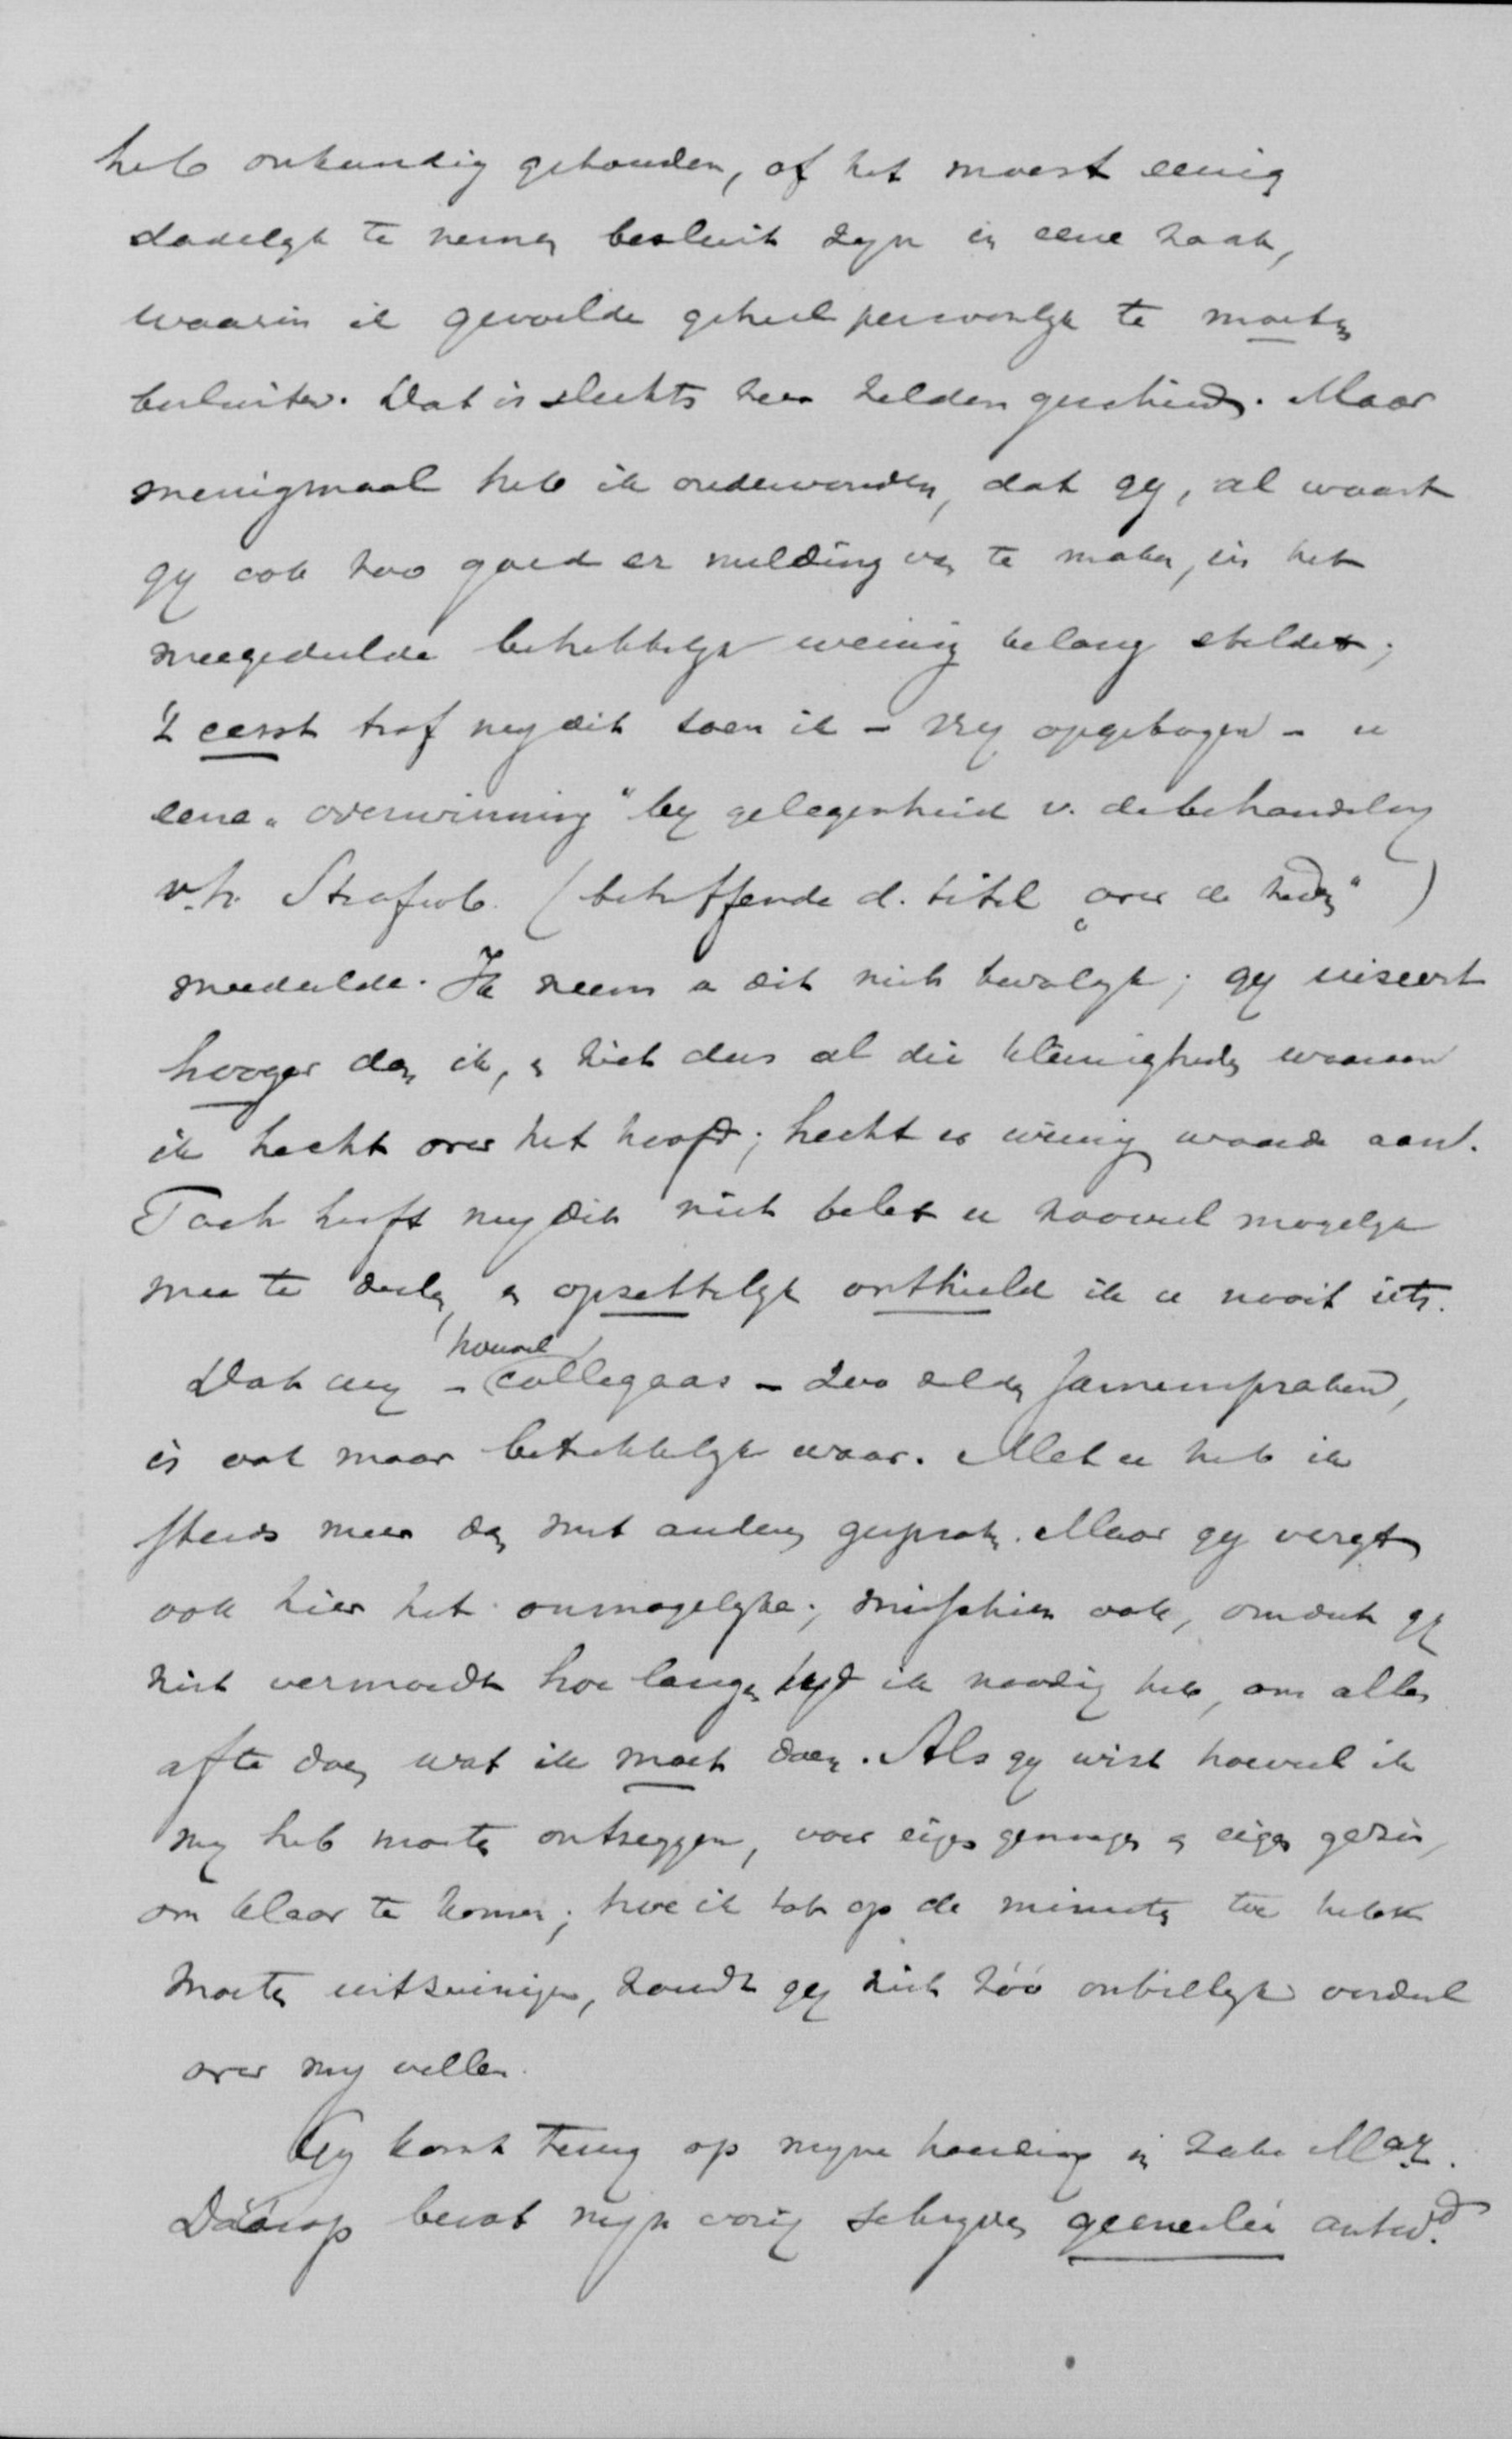 heb onkundig gehouden, of het moest eenig
dadelijk te nemen besluit zijn in eene zaak,
waarin ik gevoelde geheel persoonlijk te moeten
besluiten. Dat is slechts zeer zelden geschied. Maar
menigmaal heb ik ondervonden, dat gij, al waart
gij ook zoo goed er melding van te maken, in het
meegedeelde betrekkelijk weinig belang steldet;
't eerst trof mij dit toen ik – vrij opgetogen – u
eene „overwinning" bij gelegenheid v. de behandeling
v.h. Strafwb. (betreffende d. titel „over de zeden")
meedeelde. Ik neem u dit niet kwalijk; gij viseert
hooger dan ik, en ziet dus al die kleinigheden waaraan
ik hecht over het hoofd; hecht er weinig waarde aan.
Toch heeft mij dit niet belet u zooveel mogelijk
mee te deelen, en opzettelijk onthield ik u nooit iets.
Dat wij – collegaas – zoo zelden samenspraken,
is ook maar betrekkelijk waar. Met u heb ik
steeds meer dan met anderen gesproken. Maar gij vergt
ook hier het onmogelijke; misschien ook, omdat gij
niet vermoedt hoe langen tijd ik noodig heb, om alles
af te doen wat ik moet doen. Als gij wist hoeveel ik
mij heb moeten ontzeggen, voor eigen genoegen en eigen gezin,
om klaar te komen; hoe ik tot op de minuten toe heb
moeten uitzuinigen, zoudt gij niet zóó onbillijk oordeel
over mij vellen.
Gij komt terug op mijne houding in zake Maz.
Dáárop bevat mijn vorig schrijven geenerlei antwd.